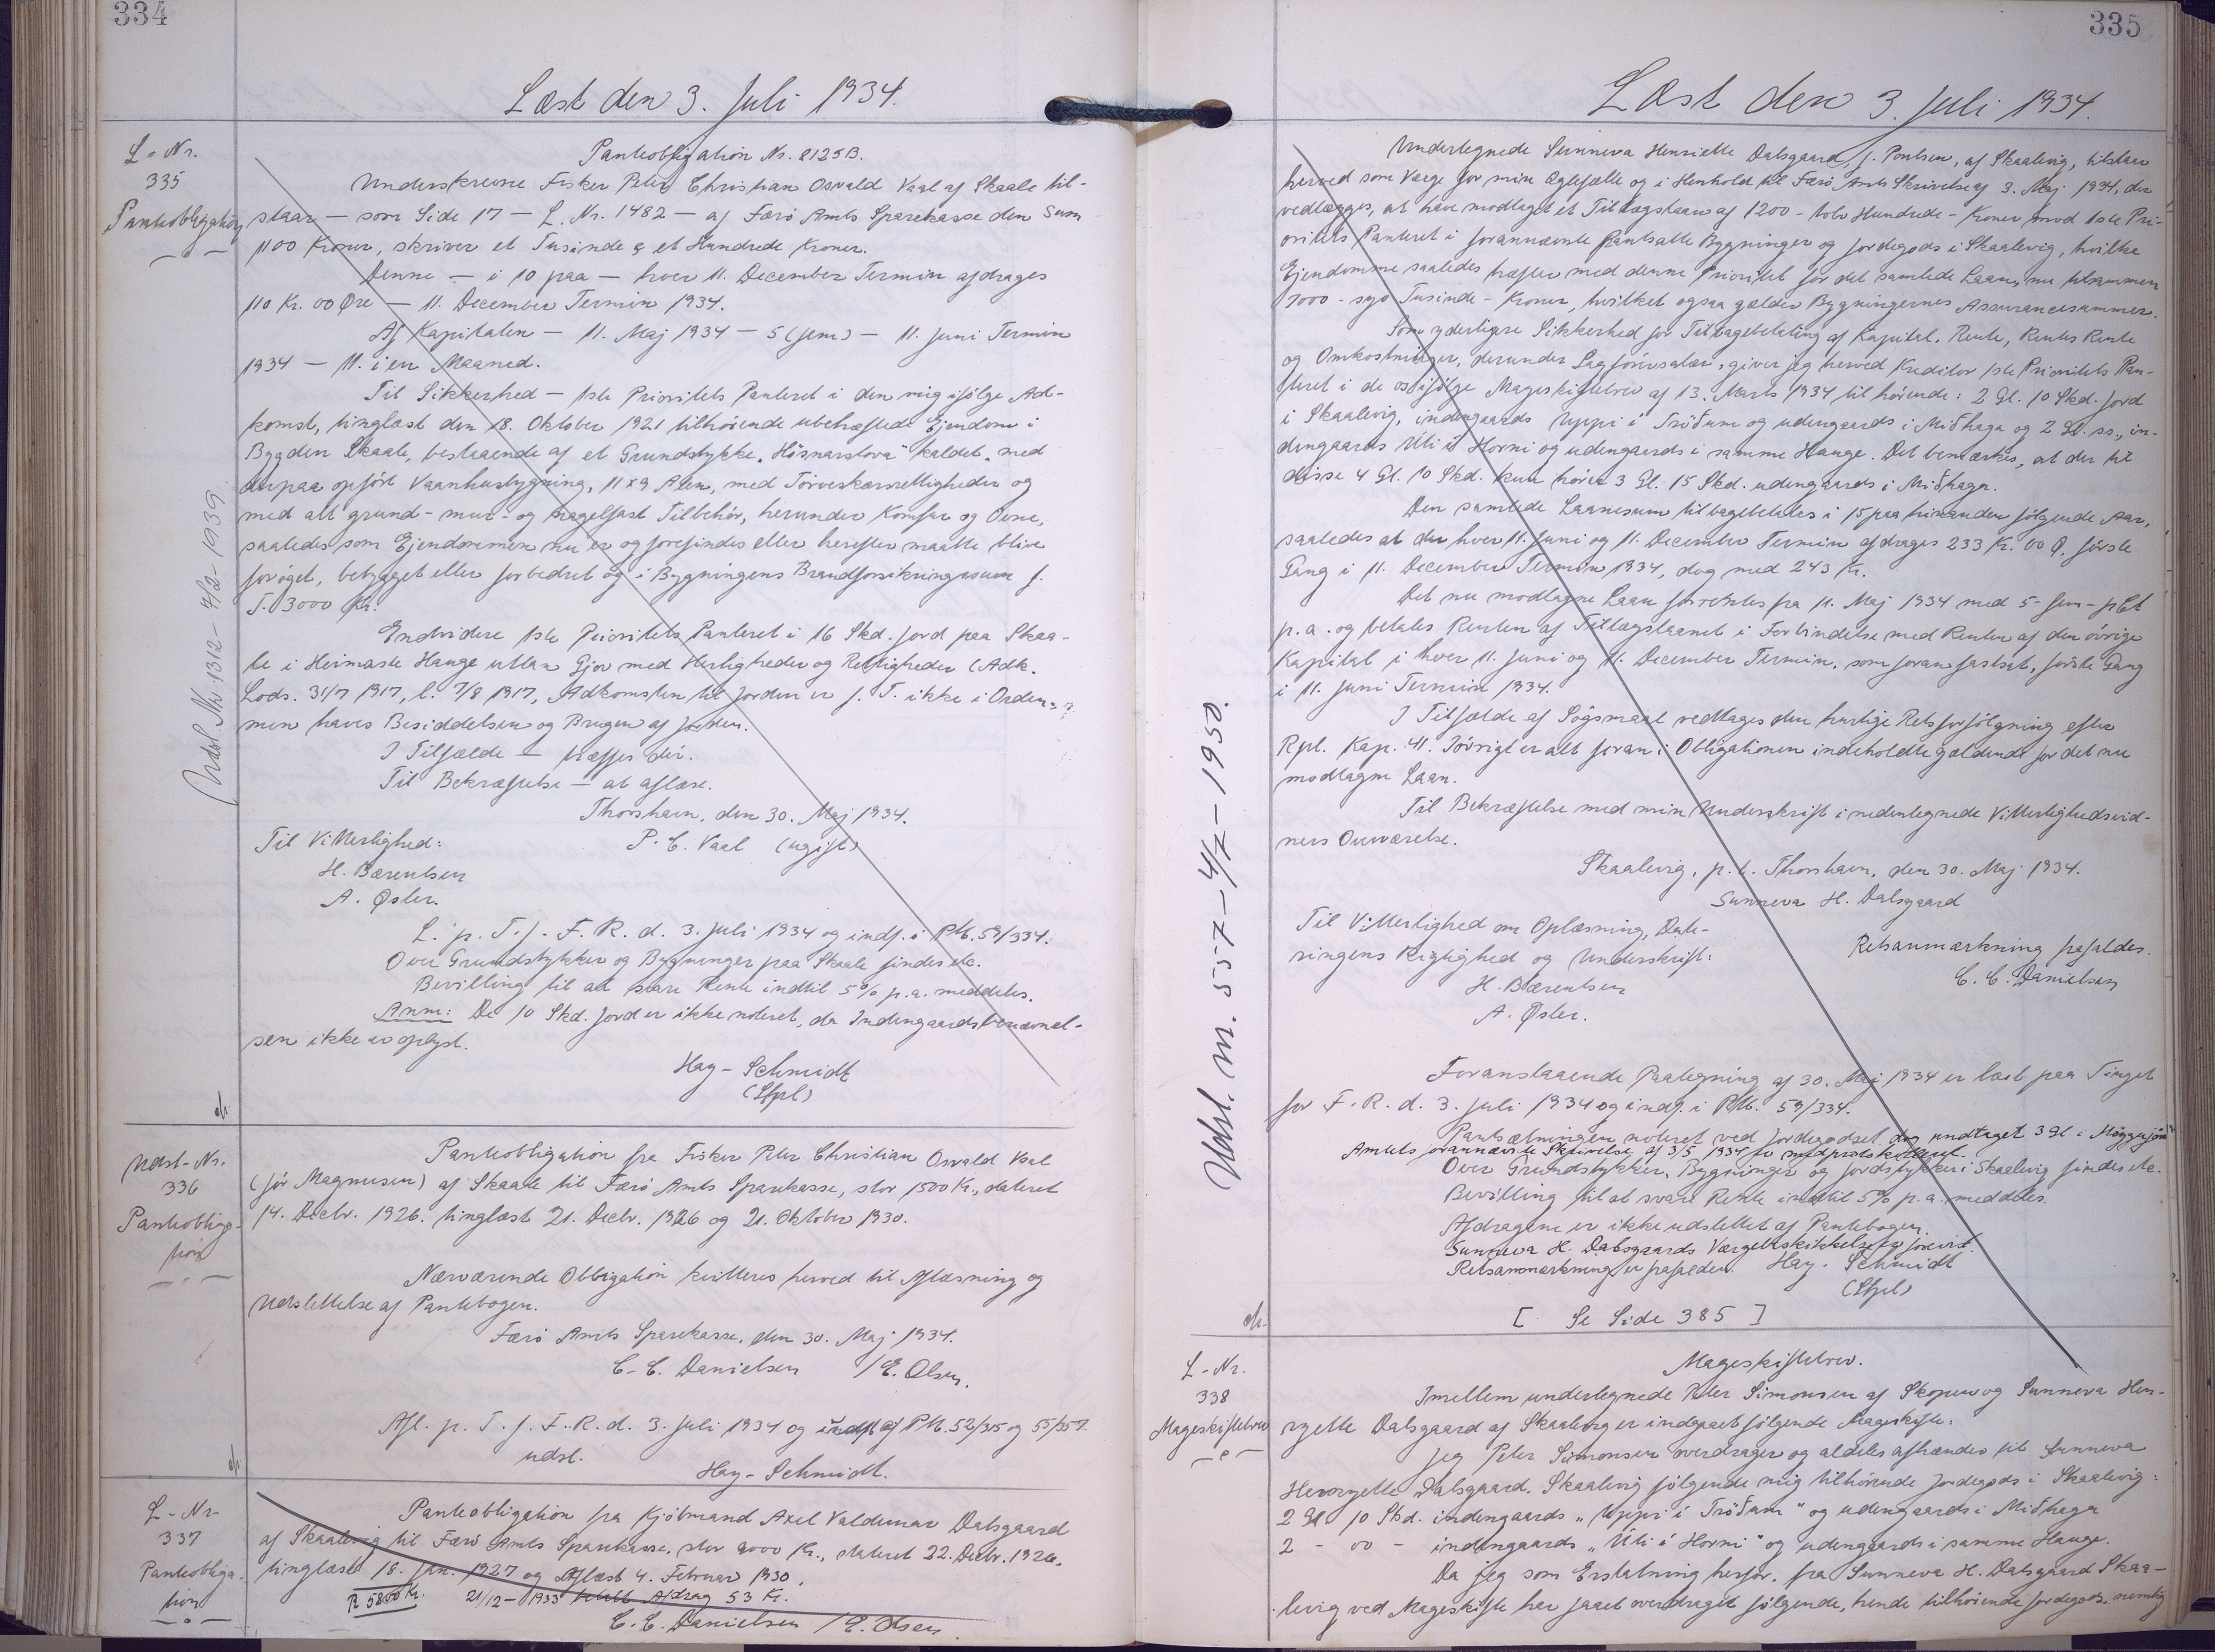 334
Læst den 3. Juli 1934.
L-Nr.
335
Pantobligation
Pantobligation Nr. 2125B.
Underskrevne Fisker Peter Christian Osvald Vaal af Skaale til-
staar — som Side 17 — L. Nr. 1482 — af Færø Amts Sparekasse den Sum
1100 Kroner, skriver et Tusinde & et Hundrede Kroner.
Denne — i 10 paa — hver 11. December Termin afdrages
110 Kr. 00 Øre — 11. December Termin 1934.
Af Kapitalen — 11. Maj 1934 — 5 (fem) — 11. Juni Termin
1934 — 11. i en Maaned.
Til Sikkerhed — 1ste Prioritets Panteret i den mig ifølge Ad-
komst, tinglæst den 18. Oktober 1921 tilhørende ubehæftede Ejendom i
Bygden Skaale, bestaaende af et Grundstykke „Hósnarstova" kaldet, med
derpaa opført Vaanhusbygning, 11 x 9 Alen, med Tørveskærsrettigheder og
med alt grund- mur- og nagelfast Tilbehør, herunder Komfur og Ovne,
saaledes som Ejendommen nu er og forefindes eller herefter maatte blive
forøget, bebygget eller forbedret og i Bygningens Brandforsikringssum f.
T. 3000 Kr.
Endvidere 1ste Prioritets Panteret i 16 Skd. Jord paa Skaa-
le i Heimaste Hauge uttan Gjov med Herligheder og Rettigheder (Adk.
Lods. 31/7 1917, l. 7/8 1917, Adkomsten til Jorden er f. T. ikke i Orden,
men haves Besiddelsen og Brugen af Jorden.
I Tilfælde — træffes der.
Til Bekræftelse — at aflæse.
Thorshavn, den 30. Maj 1934.
Til Vitterlighed: P. C. Vaal (ugift)
H. Bærentsen
A. Øster.
L. p. T. f. F. R. d. 3. Juli 1934 og indf. i PM. 59/334.
Over Grundstykker og Bygninger paa Skaale findes etc.
Bevilling til at svare Rente indtil 5% p.a. meddeles.
Anm: De 10 Skd. Jord er ikke noteret, da Indengaardsbenævnel-
sen ikke er oplyst.
Hay-Schmidt
(Stpl)
Udsl. Nr. 1312 - 4/12 - 1939
Udsl-Nr.
336
Pantobliga-
tion
Pantobligation fra Fisker Peter Christian Osvald Vaal
(før Magnusen) af Skaale til Færø Amts Sparekasse, stor 1500 Kr., dateret
14. Decbr. 1926. tinglæst 21. Decbr. 1926 og 21. Oktober 1930.
Nærværende Obligation kvitteres herved til Aflæsning og
Udslettelse af Pantebogen.
Færø Amts Sparekasse, den 30. Maj 1934.
C. C. Danielsen / E. Olsen.
Afl. p. T. f. F. R. d. 3. Juli 1934 og af PM. 52/315 og 55/357
udsl.
Hay-Schmidt.
L-Nr
337
Pantobliga-
tion
Pantobligation fra Kjøbmand Axel Valdemar Dalsgaard
af Skaalevig til Færø Amts Sparekasse, stor 9000 Kr., dateret 22. Decbr. 1926,
tinglæst 18. Jan. 1927 og aflæst 4. Februar 1930.
R 5800 Kr. 21/12 - 1933 betalt Afdrag 53 Kr.
C. C. Danielsen / E. Olsen.
335
Læst den 3. Juli 1934.
Undertegnede Sunneva Henriette Dalsgaard, f. Poulsen, af Skaalevig, tilstaar
herved som Værge for min Ægtefælle og i Henhold til Færø Amts Skrivelse af 3. Maj 1934, der
vedlægges, at have modtaget et Tillægslaan af 1200 - tolv Hundrede - Kroner mod 1ste Pri-
oritets Panteret i forannævnte pantsatte Bygninger og Jordegods i Skaalevig, hvilke
Ejendomme saaledes hæfter med denne Prioritet for det samlede Laan, nu tilsammen
7000 - syv Tusinde - Kroner, hvilket ogsaa gælder Bygningernes Assurancesummer.
Som yderligere Sikkerhed for Tilbagebetaling af Kapital, Rente, Rentes Rente
og Omkostninger, derunder Sagførersalær, giver jeg herved Kreditor 1ste Prioritets Pan-
teret i de os ifølge Mageskiftebrev af 13. Marts 1934 tilhørende: 2 Gl. 10 Skd. Jord
i Skaalevig, indengaards Uppi í Trøðum og udengaards i Miðhaga og 2 Gl. ss., in-
dengaards Úti á Horni og udengaards i samme Hauge. Det bemærkes, at der til
disse 4 Gl. 10 Skd. kun hører 3 Gl. 15 Skd. udengaards i Miðhaga.
Den samlede Laanesum tilbagebetales i 15 paa hinanden følgende Aar,
saaledes at der hver 11. Juni og 11. December Termin afdrages 233 Kr. 00 Ø, første
Gang i 11. December Termin 1934, dog med 243 Kr.
Det nu modtagne Laan forrentes fra 11. Maj 1934 med 5 - fem - pCt
p.a. og betales Renten af Tillægslaanet i Forbindelse med Renten af den øvrige
Kapital i hver 11. Juni og 11. December Termin, som foran fastsat, første Gang
i 11. Juni Termin 1934.
I Tilfælde af Søgsmaal vedtages den hurtige Retsforfølgning efter
Rpl. Kap. 41. Iøvrigt er alt foran i Obligationen indeholdte gældende for det nu
modtagne Laan.
Til Bekræftelse med min Underskrift i nedentegnede Vitterlighedsvid-
ners Overværelse.
Skaalevig, p. t. Thorshavn, den 30. Maj 1934.
Sunneva H. Dalsgaard
Til Vitterlighed om Oplæsning, Date-
ringens Rigtighed og Underskrift: Retsanmærkning frafaldes.
H. Bærentsen C. C. Danielsen
A. Øster.
Foranstaaende Paategning af 30. Maj 1934 er læst paa Tinget
for F. R. d. 3. Juli 1934 og indf. i PM. 59/334.
Pantsætningen noteret ved Jordegodset, dog undtaget 3 Gl i
Amtets forannævnte Skrivelse af 3/5 1934 er medprotokolleret.
Over Grundstykker, Bygninger og Jordstykker i Skaalevig findes etc.
Bevilling til at svare Rente indtil 5% p.a. meddeles.
Afdragene er ikke udslettet af Pantebogen.
Sunneva H. Dalsgaards Værgebeskikkelse er forevist.
Retsanmærkning er frafalden. Hay-Schmidt
(Stpl)
[ Se Side 385 ]
Udsl. M. 557 - 4/7 - 1950.
L-Nr.
338
Mageskiftebrev
Mageskiftebrev.
Imellem undertegnede Peter Simonsen af Skopun og Sunneva Hen-
ryette Dalsgaard af Skaalevig er indgaaet følgende Mageskifte:
Jeg Peter Simonsen overdrager og aldeles afhænder til Sunneva
Henryette Dalsgaard, Skaalevig følgende mig tilhørende Jordegods i Skaalevig:
2 Gl 10 Skd. indengaards „Uppi í Trøðum" og udengaards i Miðhaga
2 - 00 - indengaards „Úti á Horni" og udengaards i samme Hauge.
Da jeg som Erstatning herfor, fra Sunneva H. Dalsgaard Skaa-
levig ved Mageskifte har faaet overdraget følgende, hende tilhørende Jordegods, nemlig